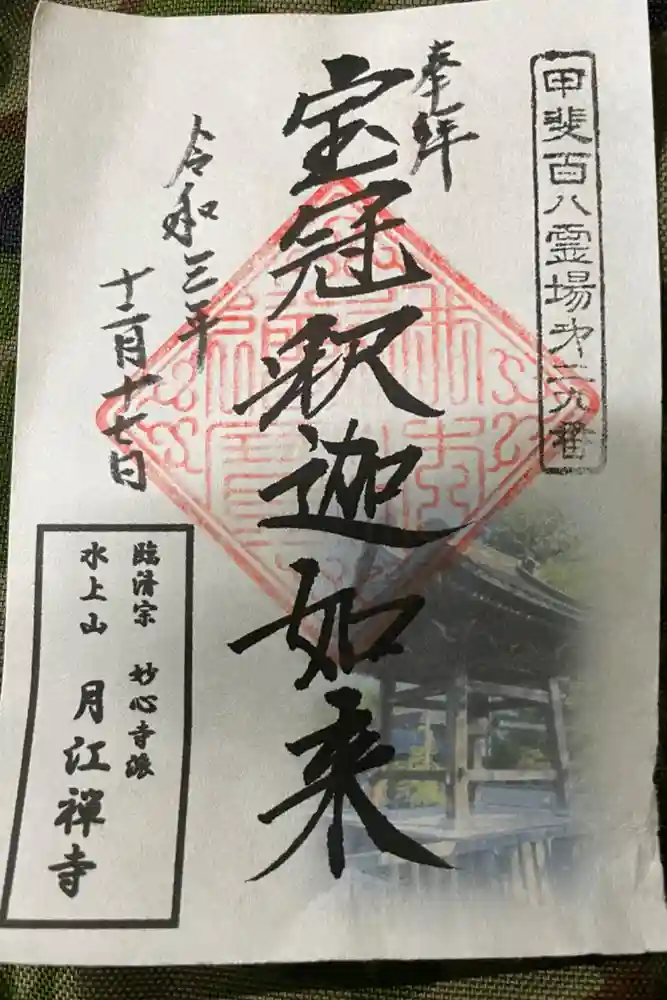 甲斐百八霊場第二九番
奉拝
宝冠釈迦如来
令和三年
十二月十七日
臨済宗 妙心寺派
水上山 月江禪寺